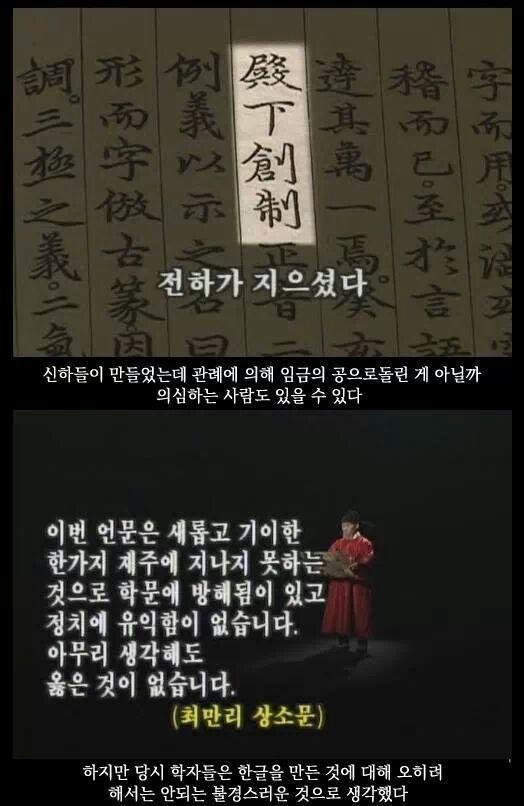 字而用。或澁或
稽而已。至於言語
達其萬一焉。癸亥
殿下創制正音二
例義以示之。名曰
形而字倣古篆。因
調。三極之義。二氣
전하가 지으셨다
신하들이 만들었는데 관례에 의해 임금의 공으로돌린 게 아닐까
의심하는 사람도 있을 수 있다
이번 언문은 새롭고 기이한
한가지 재주에 지나지 못하는
것으로 학문에 방해됨이 있고
정치에 유익함이 없습니다.
아무리 생각해도
옳은 것이 없습니다.
(최만리 상소문)
하지만 당시 학자들은 한글을 만든 것에 대해 오히려
해서는 안되는 불경스러운 것으로 생각했다